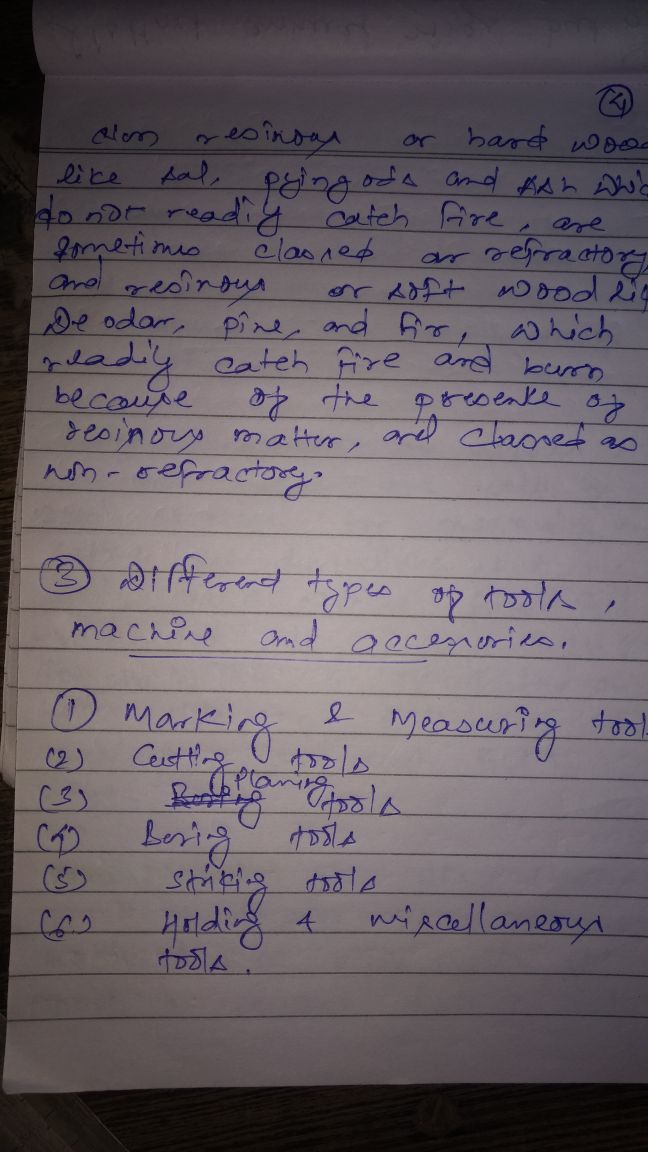 (4)
resinous or hard wood
like sal, and
do not readily catch fire, are
sometimes classed as refractory,
and resinous or soft wood
Deodar, pine, and fir, which
readily catch fire and burn
because of the presence of
resinous matter, and classed as
non-refractory.
(3) Different types of tools,
machine and accessories.
(1) Marking & Measuring tools
(2) Cutting tools
(3) Planing tools
(4) Boring tools
(5) Striking tools
(6) Holding & miscellaneous
tools.